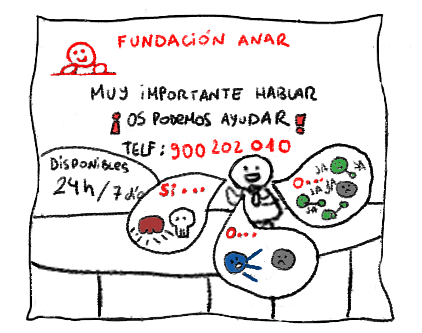 FUNDACIÓN ANAR
MUY IMPORTANTE HABLAR
¡OS PODEMOS AYUDAR!
TELF: 900 202 010
DISPONIBLES
24h/7 día
SI....
O...
JA
JA
JA
JA
JA
O...